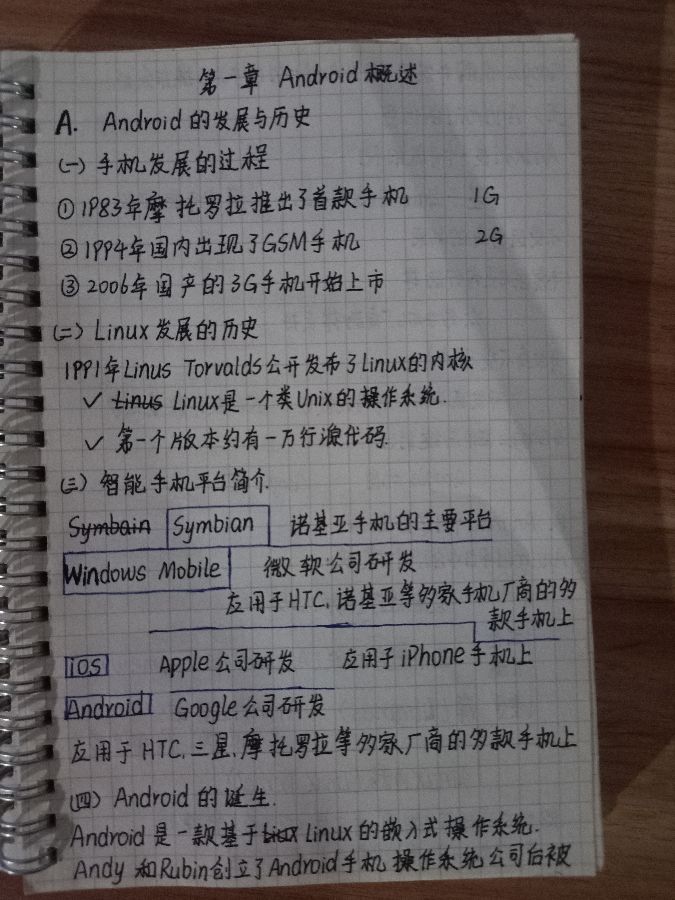 第一章 Android概述
A. Android的发展与历史
(一) 手机发展的过程
① 1983年摩托罗拉推出了首款手机 1G
② 1994年国内出现了GSM手机 2G
③ 2006年国产的3G手机开始上市
(二) Linux发展的历史
1991年Linus Torvalds公开发布了Linux的内核
✓ Linus Linux是一个类Unix的操作系统.
✓ 第一个版本约有一万行源代码.
(三) 智能手机平台简介.
Symbain Symbian 诺基亚手机的主要平台
Windows Mobile 微软公司研发
应用于HTC,诺基亚等多家手机厂商的多
款手机上
iOS Apple公司研发 应用于iPhone手机上
Android Google公司研发
应用于HTC,三星,摩托罗拉等多家厂商的多款手机上
(四) Android的诞生.
Android是一款基于Liux Linux的嵌入式操作系统.
Andy和Rubin创立了Android手机操作系统公司后被